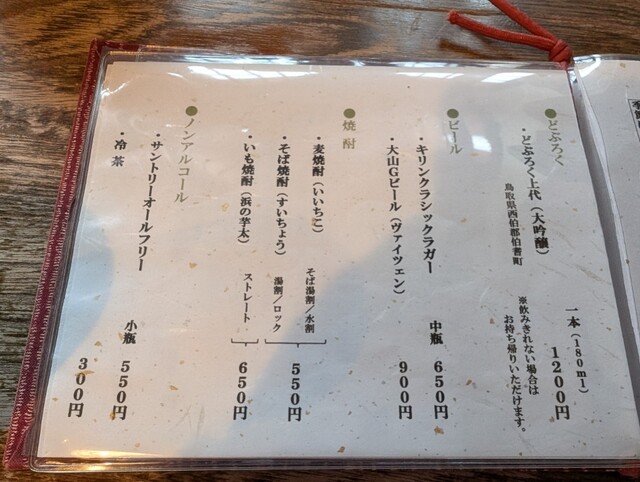 ●どぶろく
・どぶろく上代（大吟醸）
鳥取県西伯郡伯耆町
一本（180ml）
1200円
※飲みきれない場合は
お持ち帰りいただけます。
●ビール
・キリンクラシックラガー 中瓶 650円
・大山Gビール（ヴァイツェン） 900円
●焼酎
・麦焼酎（いいちこ） そば湯割／水割
・そば焼酎（すいちょう） 湯割／ロック 550円
・いも焼酎（浜の芋太） ストレート 650円
●ノンアルコール
・サントリーオールフリー 小瓶 550円
・冷茶 300円